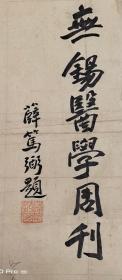 無錫醫學周刊
薛篤弼題